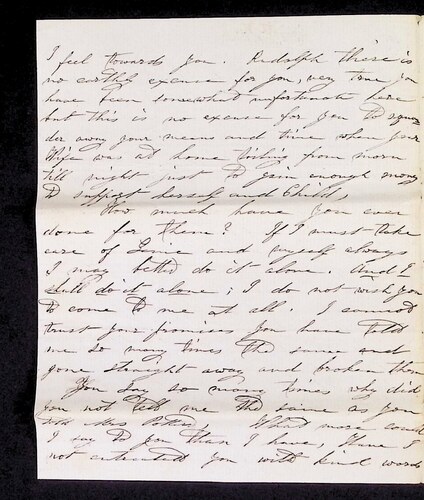 I feel towards you. Rudolph there is
no earthly excuse for you, very true you
have been somewhat unfortunate here
but this is no excuse for you to squan
der away your means and time when your
Wife was at home toiling from morn
till night just to gain enough money
to support herself and Child,
How much have you ever
done for them? If I must take
care of and myself always
I may better do it alone. And I
shall do it alone; I do not wish you
to come to me at all. I cannot
trust your promises you have told
me so many times the same and
gone straight away and broken them
You say so many times why did
you not tell me the same as you
Mrs What more could
I say to you than I have, Have I
not entreated you with kind words